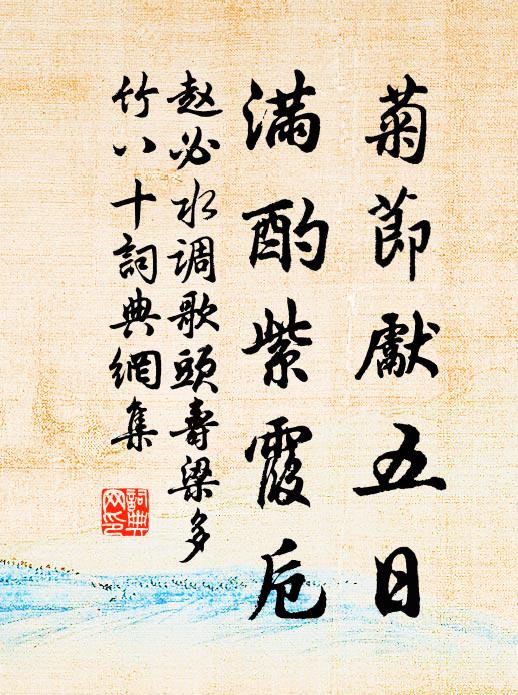 菊節獻五日
滿酌紫霞卮
赵必水调歌頭壽梁多
竹八十詞典網集
詞典
网印